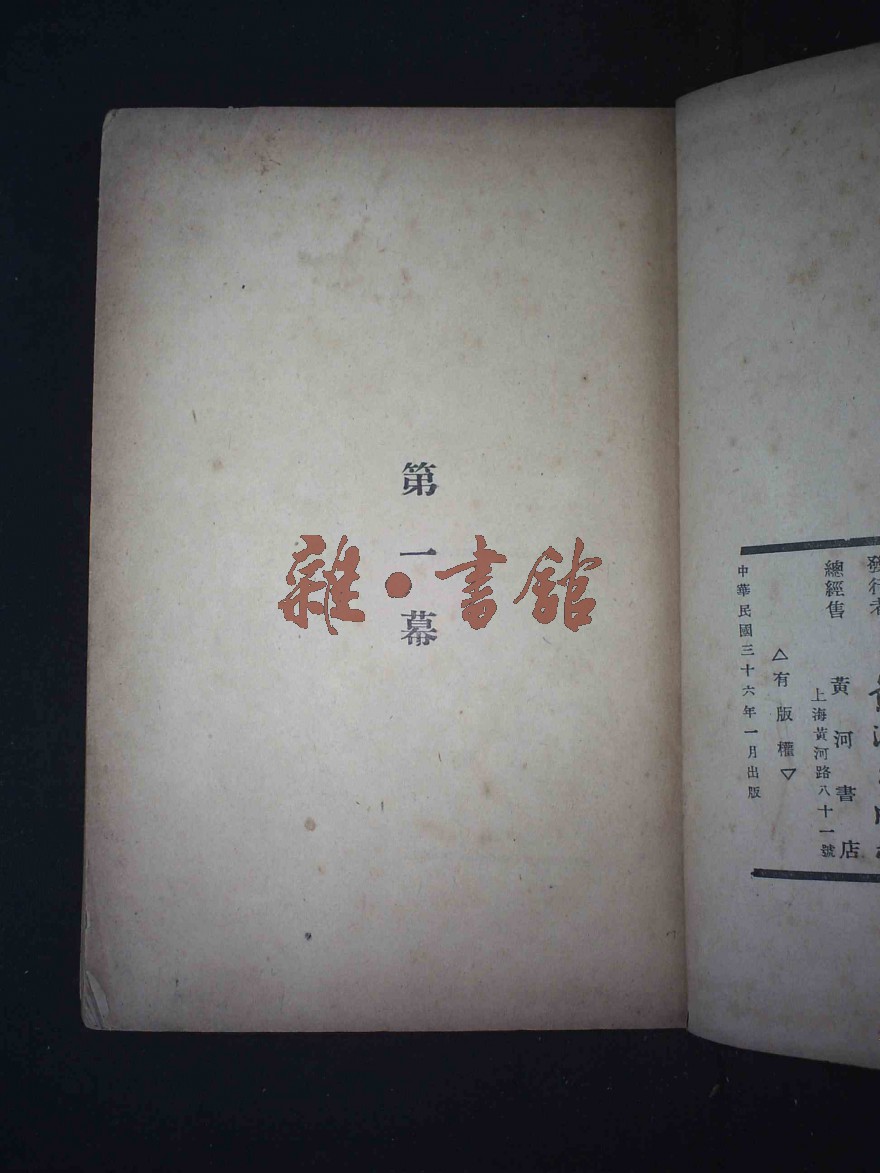 第一幕
雜·書館
發行者
總經售 黃河書店
上海黃河路八十一號
△有版權▽
中華民國三十六年一月出版